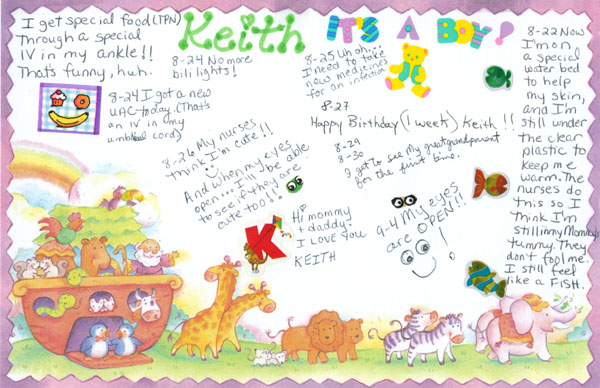 I get special food (TPN)
Through a special
IV in my ankle!!
That's funny, huh.
Keith
IT'S A BOY!
8-24 No more
bili lights!
8-25 Uh oh...
I need to take
new medicines
for an infection
8-22 Now
I'm on
a special
water bed
to help
my skin,
and I'm
still under
the clear
plastic to
keep me
warm. The
nurses do
this so I
think I'm
still in my Mommy's
tummy. They
don't fool me.
I still feel
like a FISH.
8-24 I got a new
UAC today. (That's
an IV in my
umbilical cord)
8-27
Happy Birthday (1 week) Keith!!
8-26 My nurses
think I'm cute!!
And when my eyes
open... I'll be able
to see if they are
cute too!!
8-29
8-30
I got to see my greatgrandparent
for the first time.
K
Hi mommy
+ daddy!
I LOVE YOU
KEITH
9-4 My eyes
are OPEN!!